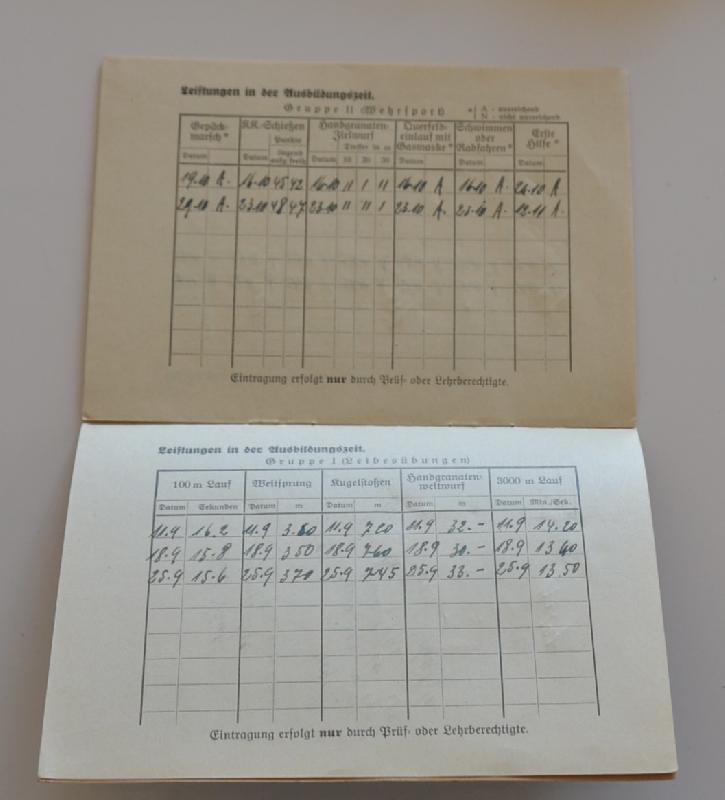 Leistungen in der Ausbildungszeit.
Gruppe II (Wehrsport)
* A - ausreichend
N - nicht ausreichend
Gepäck-marsch * K.K.-Schießen Handgranaten-Zielwurf Querfeld-einlauf mit Gasmaske * Schwimmen oder Radfahren * Erste Hilfe *
Punkte Treffer in m
Datum Datum liegend aufg. freih. Datum 10 20 30 Datum Datum Datum
19.10 A. 16.10 45 42 16.10 II I II 16.10 A 16.10 A. 20.10 A.
29.10 A. 23.10 48 47 23.10 II II I 23.10 A. 23.10 A. 12.11 A.
Eintragung erfolgt nur durch Prüf- oder Lehrberechtigte.
Leistungen in der Ausbildungszeit.
Gruppe I (Leibesübungen)
100 m Lauf Weitsprung Kugelstoßen Handgranaten-weitwurf 3000 m Lauf
Datum Sekunden Datum m Datum m Datum m Datum Min./Sek.
11.9 16.2 11.9 3.60 11.9 7.20 11.9 32.- 11.9 14.20
18.9 15.8 18.9 3.50 18.9 7.60 18.9 30.- 18.9 13.40
25.9 15.6 25.9 3.70 25.9 7.45 25.9 33.- 25.9 13.50
Eintragung erfolgt nur durch Prüf- oder Lehrberechtigte.